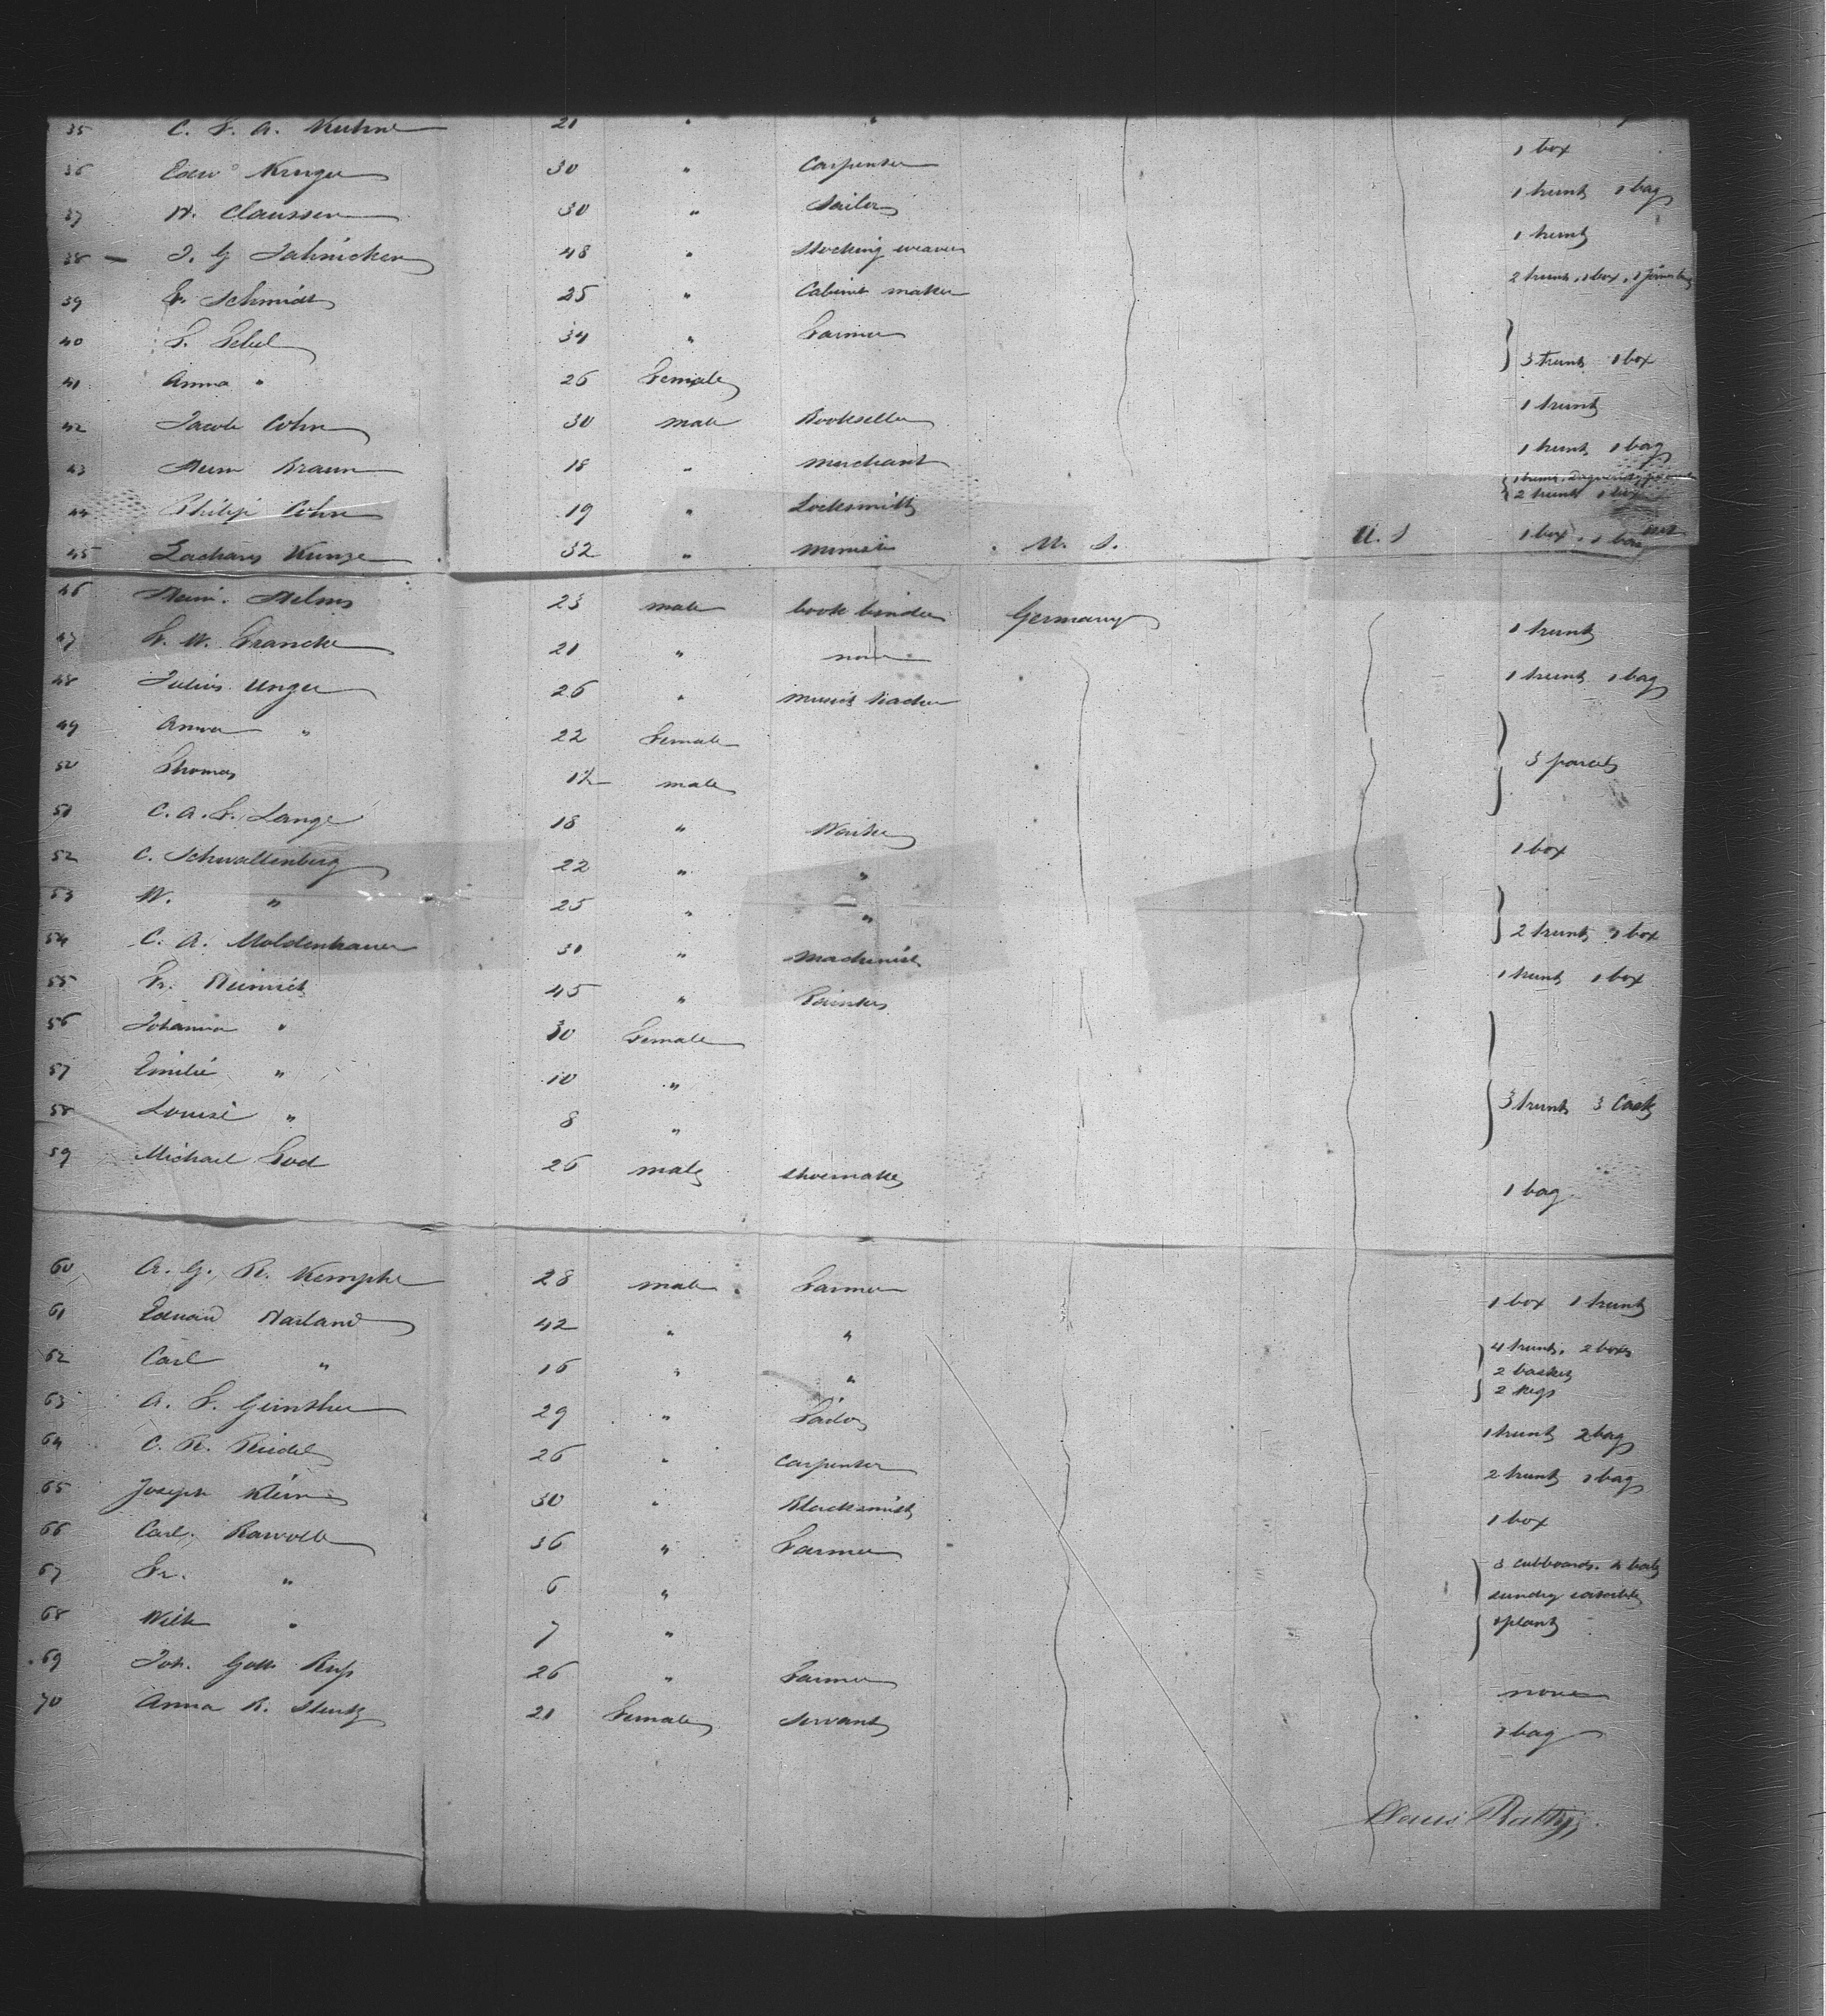 35 C. F. A. Kuhne 21 " "
36 Edw Kruger 30 " Carpenter 1 box
37 H. Claussen 30 " Sailor 1 trunk 1 bag
38 J. G Jahnichen 48 " Stocking weaver 1 trunk
39 F. Schmidt 25 " Cabinet maker 2 trunks, 1 box, 1
40 F. 34 " Farmer
41 Anna " 26 Female } 3 trunks 1 box
42 Jacob Cohn 30 male Bookseller 1 trunk
43 Herm Braun 18 " merchant 1 trunk 1 bag
44 Philip Cohn 19 " Locksmith 2 trunks 1 box
45 Zachary Kunze 32 " U. S. U. S 1 box, 1
46 Heinr. Helms 23 male book binder Germany
47 F. W. Francke 21 " none 1 trunk
48 Julius Unger 26 " music teacher 1 trunk 1 bag
49 Anna " 22 Female
50 Thomas 12 male } 3 parcels
51 C. A. F. Lange 18 "
52 C. Schwallenberg 22 " " 1 box
53 W. " 25 " "
54 C. A. Moldenhauer 31 " machinist } 2 trunks 1 box
55 Fr. Heinrich 45 " Painter 1 trunk 1 box
56 Johanna " 30 Female
57 Emilie " 10 "
58 Louise " 8 " } 3 trunks 3 Casks
59 Michael 26 male shoemaker
1 bag
60 A. G. R. Kemphe 28 male Farmer
61 Eduard Harland 42 " " 1 box 1 trunk
62 Carl " 16 " " } 4 trunks, 2 boxes
2 baskets
2 kegs
63 A. F. Gunther 29 " Tailor
64 C. R. Riedel 26 " Carpenter 1 trunk 2 bags
65 Joseph Klein 30 " Blacksmith 2 trunks 1 bag
66 Carl Rawolle 36 " Farmer 1 box
67 Fr. " 6 " } 3 cubboards,
sundry
68 Wilh " 7 "
69 Joh. Gottl 26 " Farmer
70 Anna R. 21 Female Servant none
1 bag